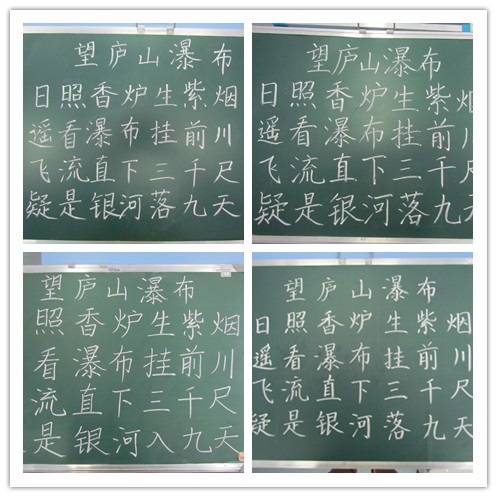 望庐山瀑布
日照香炉生紫烟
遥看瀑布挂前川
飞流直下三千尺
疑是银河落九天
望庐山瀑布
日照香炉生紫烟
遥看瀑布挂前川
飞流直下三千尺
疑是银河落九天
望庐山瀑布
照香炉生紫烟
看瀑布挂前川
流直下三千尺
是银河入九天
望庐山瀑布
日照香炉生紫烟
遥看瀑布挂前川
飞流直下三千尺
疑是银河落九天